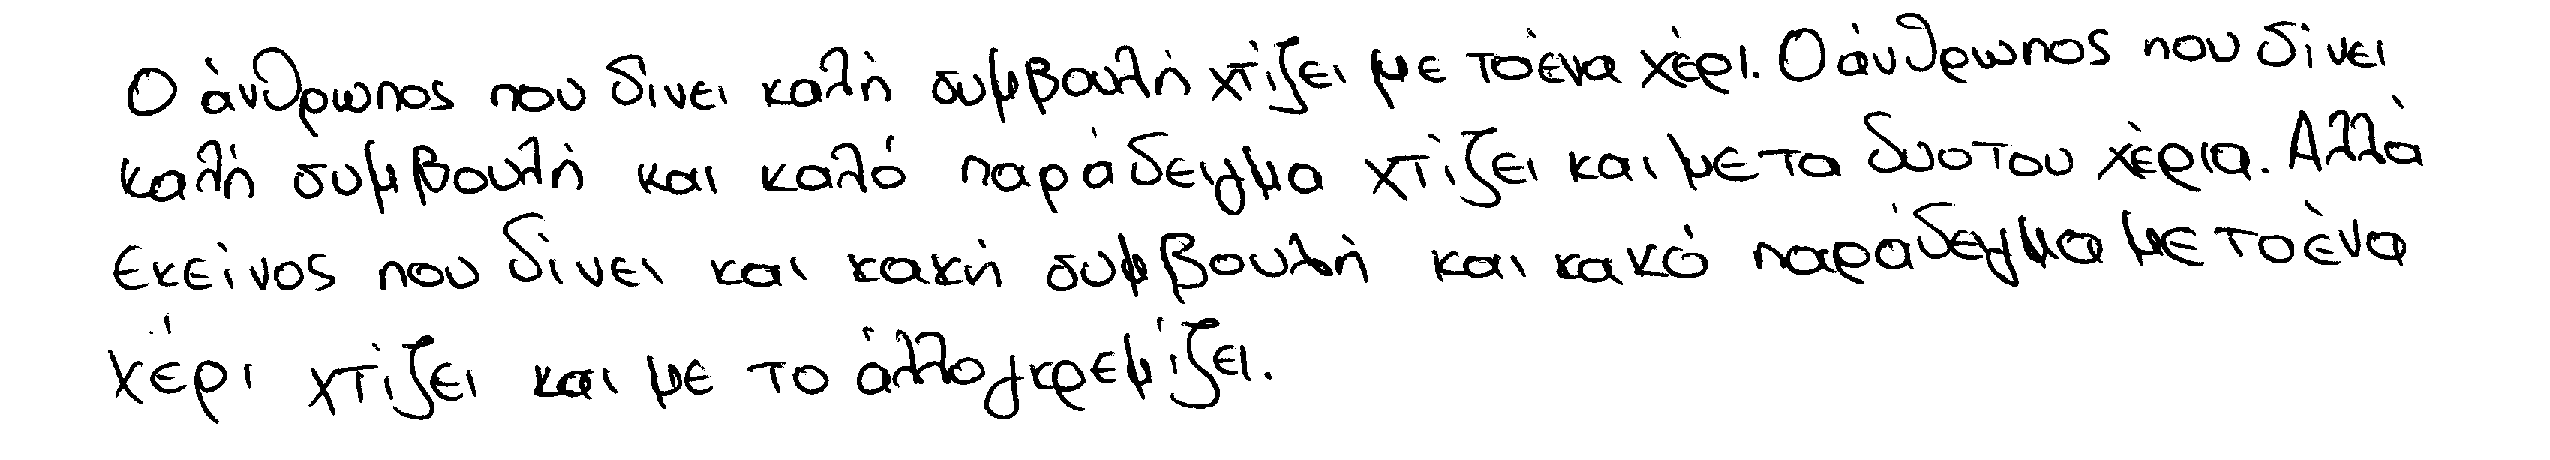 Ο άνθρωπος που δίνει καλή συμβουλή χτίζει με το ένα χέρι. Ο άνθρωπος που δίνει
καλή συμβουλή και καλό παράδειγμα χτίζει και με τα δυο του χέρια. Αλλά
εκείνος που δίνει και κακή συμβουλή και κακό παράδεγμα με το ένα
χέρι χτίζει και με το άλλο γκρεμίζει.